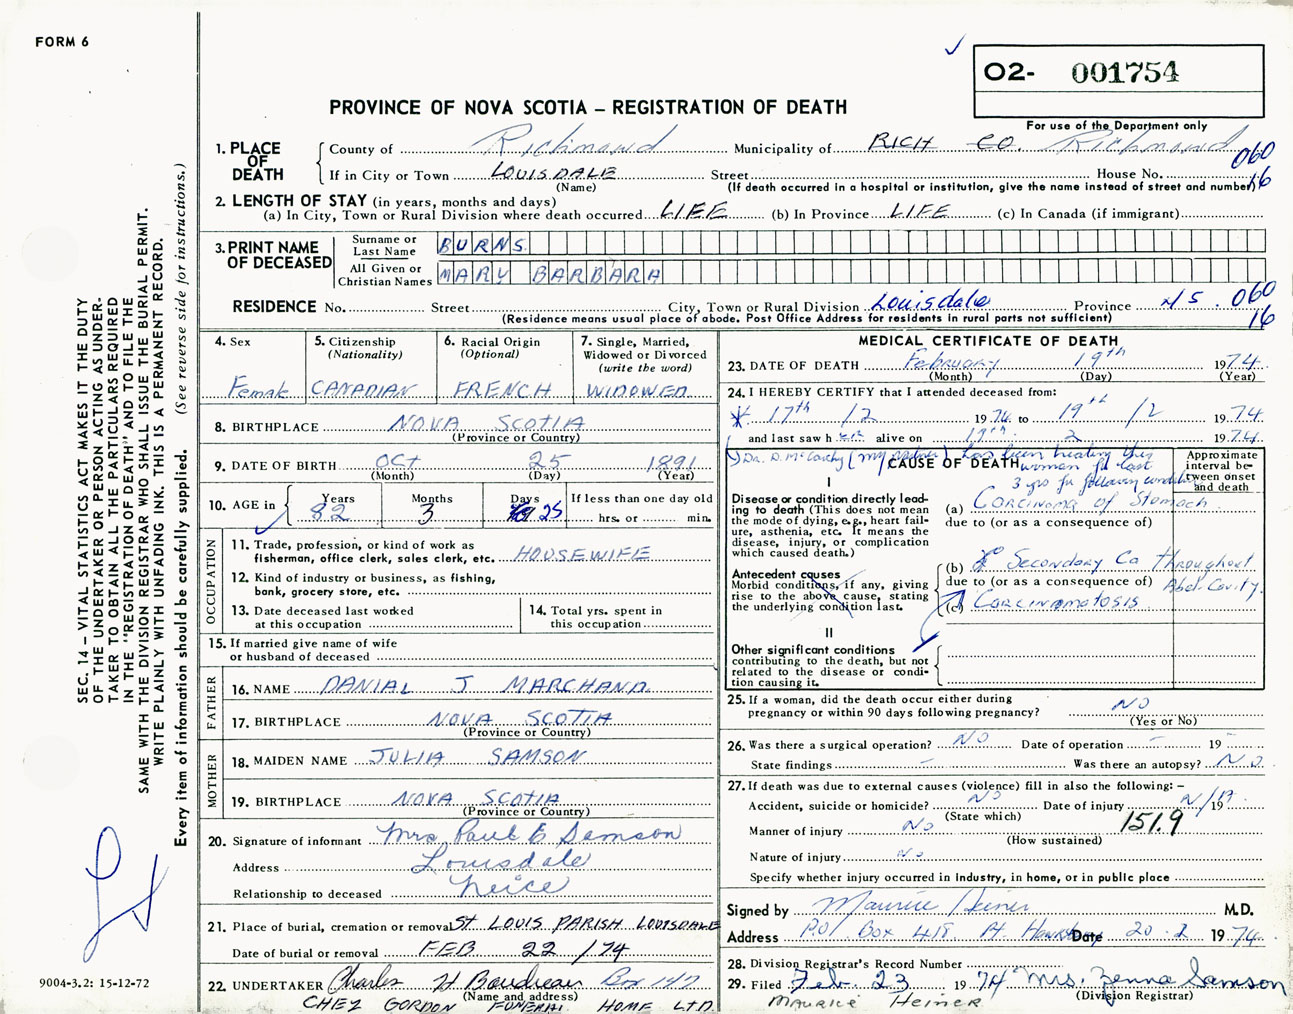 FORM 6
O2- 001754
PROVINCE OF NOVA SCOTIA – REGISTRATION OF DEATH
For use of the Department only
1. PLACE OF DEATH
County of Richmond Municipality of RICH CO. Richmond
If in City or Town LOUISDALE Street House No. 060
(Name) (If death occurred in a hospital or institution, give the name instead of street and number) 16
2. LENGTH OF STAY (in years, months and days)
(a) In City, Town or Rural Division where death occurred LIFE (b) In Province LIFE (c) In Canada (if immigrant)
3. PRINT NAME OF DECEASED
Surname or Last Name BURNS
All Given or Christian Names MARY BARBARA
RESIDENCE No. Street City, Town or Rural Division Louisdale Province N S. 060
(Residence means usual place of abode. Post Office Address for residents in rural parts not sufficient) 16
4. Sex
Female
5. Citizenship
(Nationality)
CANADIAN
6. Racial Origin
(Optional)
FRENCH
7. Single, Married,
Widowed or Divorced
(write the word)
WIDOWED
8. BIRTHPLACE NOVA SCOTIA
(Province or Country)
9. DATE OF BIRTH OCT 25 1891
(Month) (Day) (Year)
10. AGE in Years Months Days If less than one day old
82 3 25 hrs. or min.
OCCUPATION
11. Trade, profession, or kind of work as
fisherman, office clerk, sales clerk, etc. HOUSEWIFE
12. Kind of industry or business, as fishing,
bank, grocery store, etc.
13. Date deceased last worked
at this occupation
14. Total yrs. spent in
this occupation
15. If married give name of wife
or husband of deceased
FATHER
16. NAME DANIAL J MARCHAND
17. BIRTHPLACE NOVA SCOTIA
(Province or Country)
MOTHER
18. MAIDEN NAME JULIA SAMSON
19. BIRTHPLACE NOVA SCOTIA
(Province or Country)
20. Signature of informant Mrs Paul E Samson
Address Louisdale
Relationship to deceased Neice
21. Place of burial, cremation or removal ST LOUIS PARISH LOUISDALE
Date of burial or removal FEB 22 /74
22. UNDERTAKER Charles H Boudreau Box
(Name and address)
CHEZ GORDON FUNERAL HOME LTD.
MEDICAL CERTIFICATE OF DEATH
23. DATE OF DEATH February 19th 1974
(Month) (Day) (Year)
24. I HEREBY CERTIFY that I attended deceased from:
* 17th /2 1974 to 19th /2 1974
and last saw her alive on 19th 2 1974
Dr. D. McCarthy (my partner) has been treating this
woman for last
3 yrs for following condition
CAUSE OF DEATH
Approximate
interval between
onset
and death
I
Disease or condition directly leading
to death (This does not mean
the mode of dying, e.g., heart failure,
asthenia, etc. It means the
disease, injury, or complication
which caused death.)
(a) Carcinoma of Stomach
due to (or as a consequence of)
Antecedent causes
Morbid conditions, if any, giving
rise to the above cause, stating
the underlying condition last.
(b) Secondary Ca throughout
due to (or as a consequence of) Abd. Cavity.
(c) CARCINOMATOSIS
II
Other significant conditions
contributing to the death, but not
related to the disease or condition
causing it.
25. If a woman, did the death occur either during
pregnancy or within 90 days following pregnancy? NO
(Yes or No)
26. Was there a surgical operation? NO Date of operation – 19 –
State findings – Was there an autopsy? NO
27. If death was due to external causes (violence) fill in also the following: –
Accident, suicide or homicide? NO Date of injury N/A 19
(State which)
Manner of injury NO 151.9
(How sustained)
Nature of injury NO
Specify whether injury occurred in industry, in home, or in public place
Signed by Maurice Heiner M.D.
Address P.O. Box 418 Pt. Hawkesbury Date 20 - 2 1974
28. Division Registrar's Record Number
29. Filed Feb. 23 1974 Mrs. Zenna Samson
(Division Registrar)
MAURICE HEINER
SEC. 14 – VITAL STATISTICS ACT MAKES IT THE DUTY
OF THE UNDERTAKER OR PERSON ACTING AS UNDERTAKER
TO OBTAIN ALL THE PARTICULARS REQUIRED
IN THE "REGISTRATION OF DEATH" AND TO FILE THE
SAME WITH THE DIVISION REGISTRAR WHO SHALL ISSUE THE BURIAL PERMIT.
WRITE PLAINLY WITH UNFADING INK. THIS IS A PERMANENT RECORD.
Every item of information should be carefully supplied. (See reverse side for instructions.)
9004-3.2: 15-12-72